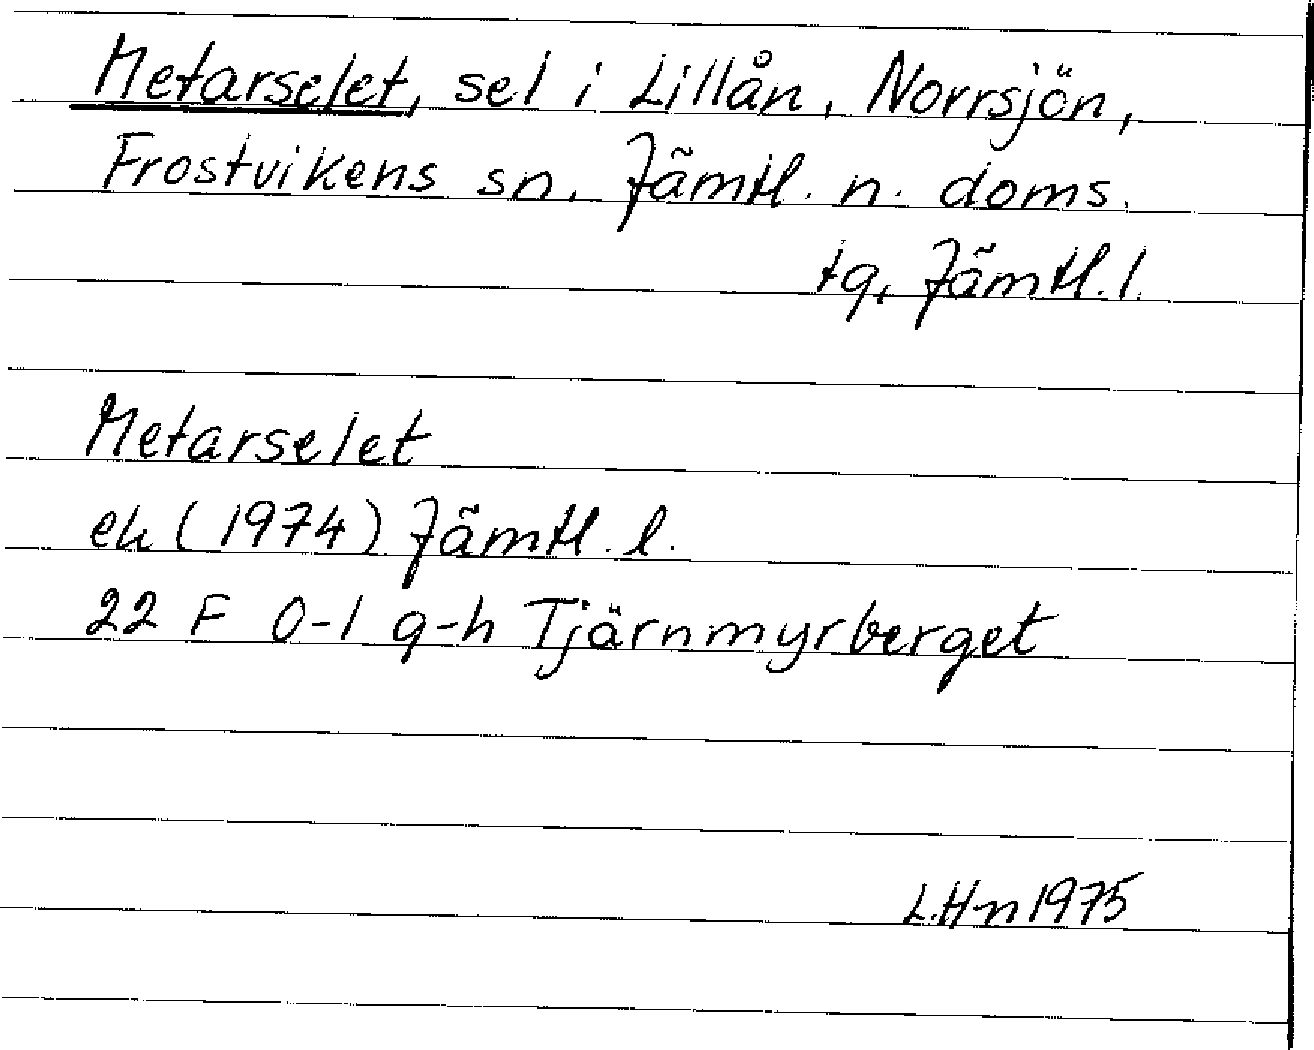 Metarselet, sel i Lillån, Norrsjön,
Frostvikens sn, Jämtl. n. doms.
tg, Jämtl. l.
Metarselet
ek (1974) Jämtl. l.
22 F 0-1 g-h Tjärnmyrberget
L.Hn 1975